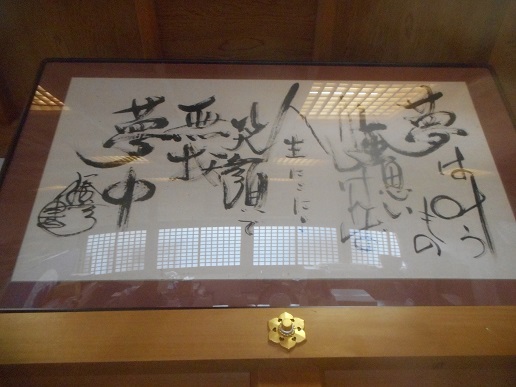 夢は叶うもの
思い
人生にこにこ
笑顔で
無我
夢中